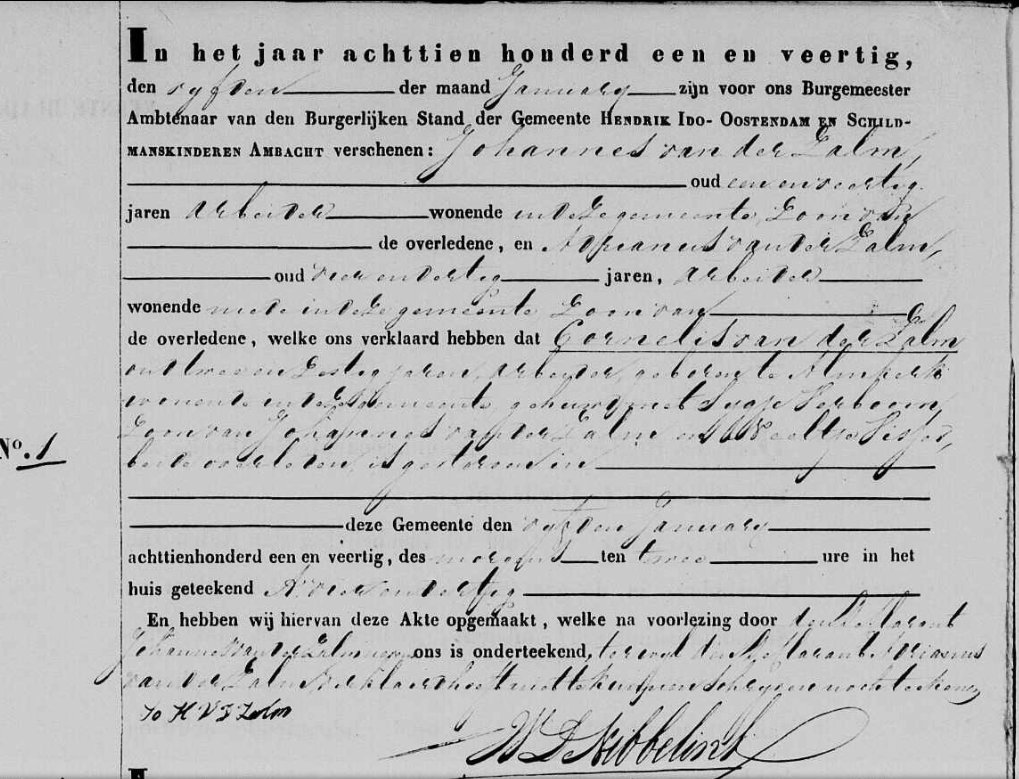 In het jaar achttien honderd een en veertig,
den vyfden der maand January zijn voor ons Burgemeester
Ambtenaar van den Burgerlijken Stand der Gemeente HENDRIK IDO- OOSTENDAM EN SCHILD-
MANSKINDEREN AMBACHT verschenen: Johannes van der Zalm,
oud een en veertig
jaren arbeider wonende in deze gemeente, zoon van
de overledene, en Adrianus van der Zalm,
oud vier en dertig jaren, arbeider
wonende mede in deze gemeente zoon van
de overledene, welke ons verklaard hebben dat Cornelis van der Zalm
oud twee en zestig jaren, arbeider, geboren te Almkerk
wonende in deze gemeente, gehuwd met Verboom,
zoon van Johannes van der Zalm en
No. 1
beide overleden, is gestorven in
deze Gemeente den vyfden January
achttienhonderd een en veertig, des morgens ten twee ure in het
huis geteekend A vier en dertig
En hebben wij hiervan deze Akte opgemaakt, welke na voorlezing door den declarant
Johannes van der Zalm en ons is onderteekend, terwyl de declarant Adrianus
van der Zalm verklaard heeft niet te kunnen schryven noch teekenen